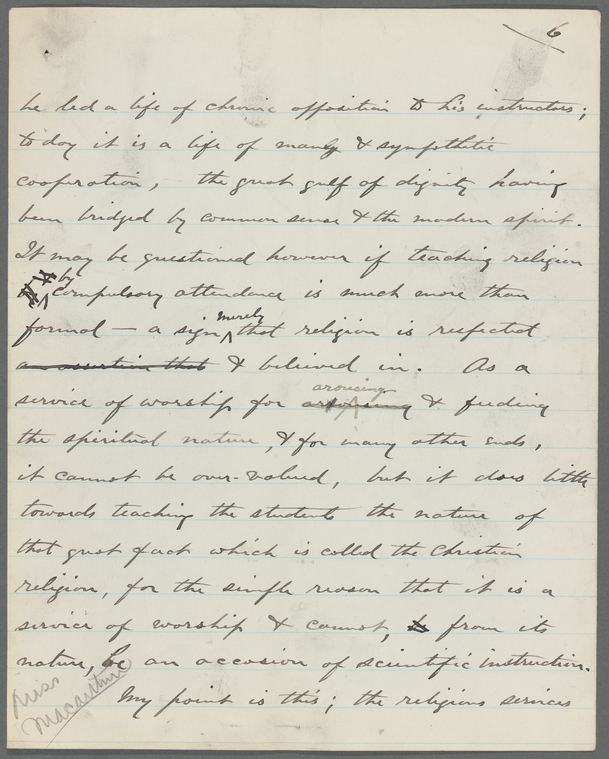 6
he led a life of chronic opposition to his instructors;
to day it is a life of manly & sympathetic
cooperation, the great gulf of dignity having
been bridged by common sense & the modern spirit.
It may be questioned however if teaching religion
by compulsory attendance is much more than
formal — a sign merely that religion is respected
a assertion that & believed in. As a
service of worship for arousing & feeding
the spiritual nature, & for many other ends,
it cannot be over-valued, but it does little
towards teaching the students the nature of
that great fact which is called the Christian
religion, for the simple reason that it is a
service of worship & cannot, from its
nature, be an occasion of scientific instruction.
My point is this; the religious services
Miss
Macarthur